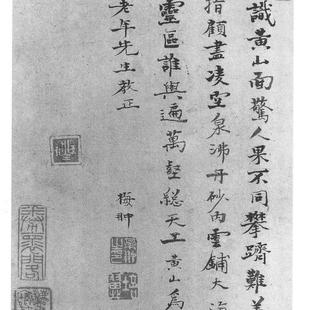 識黃山面驚人果不同攀躋難
指顧盡凌空泉沸丹砂內雲鋪大海
靈區誰與遍萬壑總天工黃山為
老年先生教正
梅翀